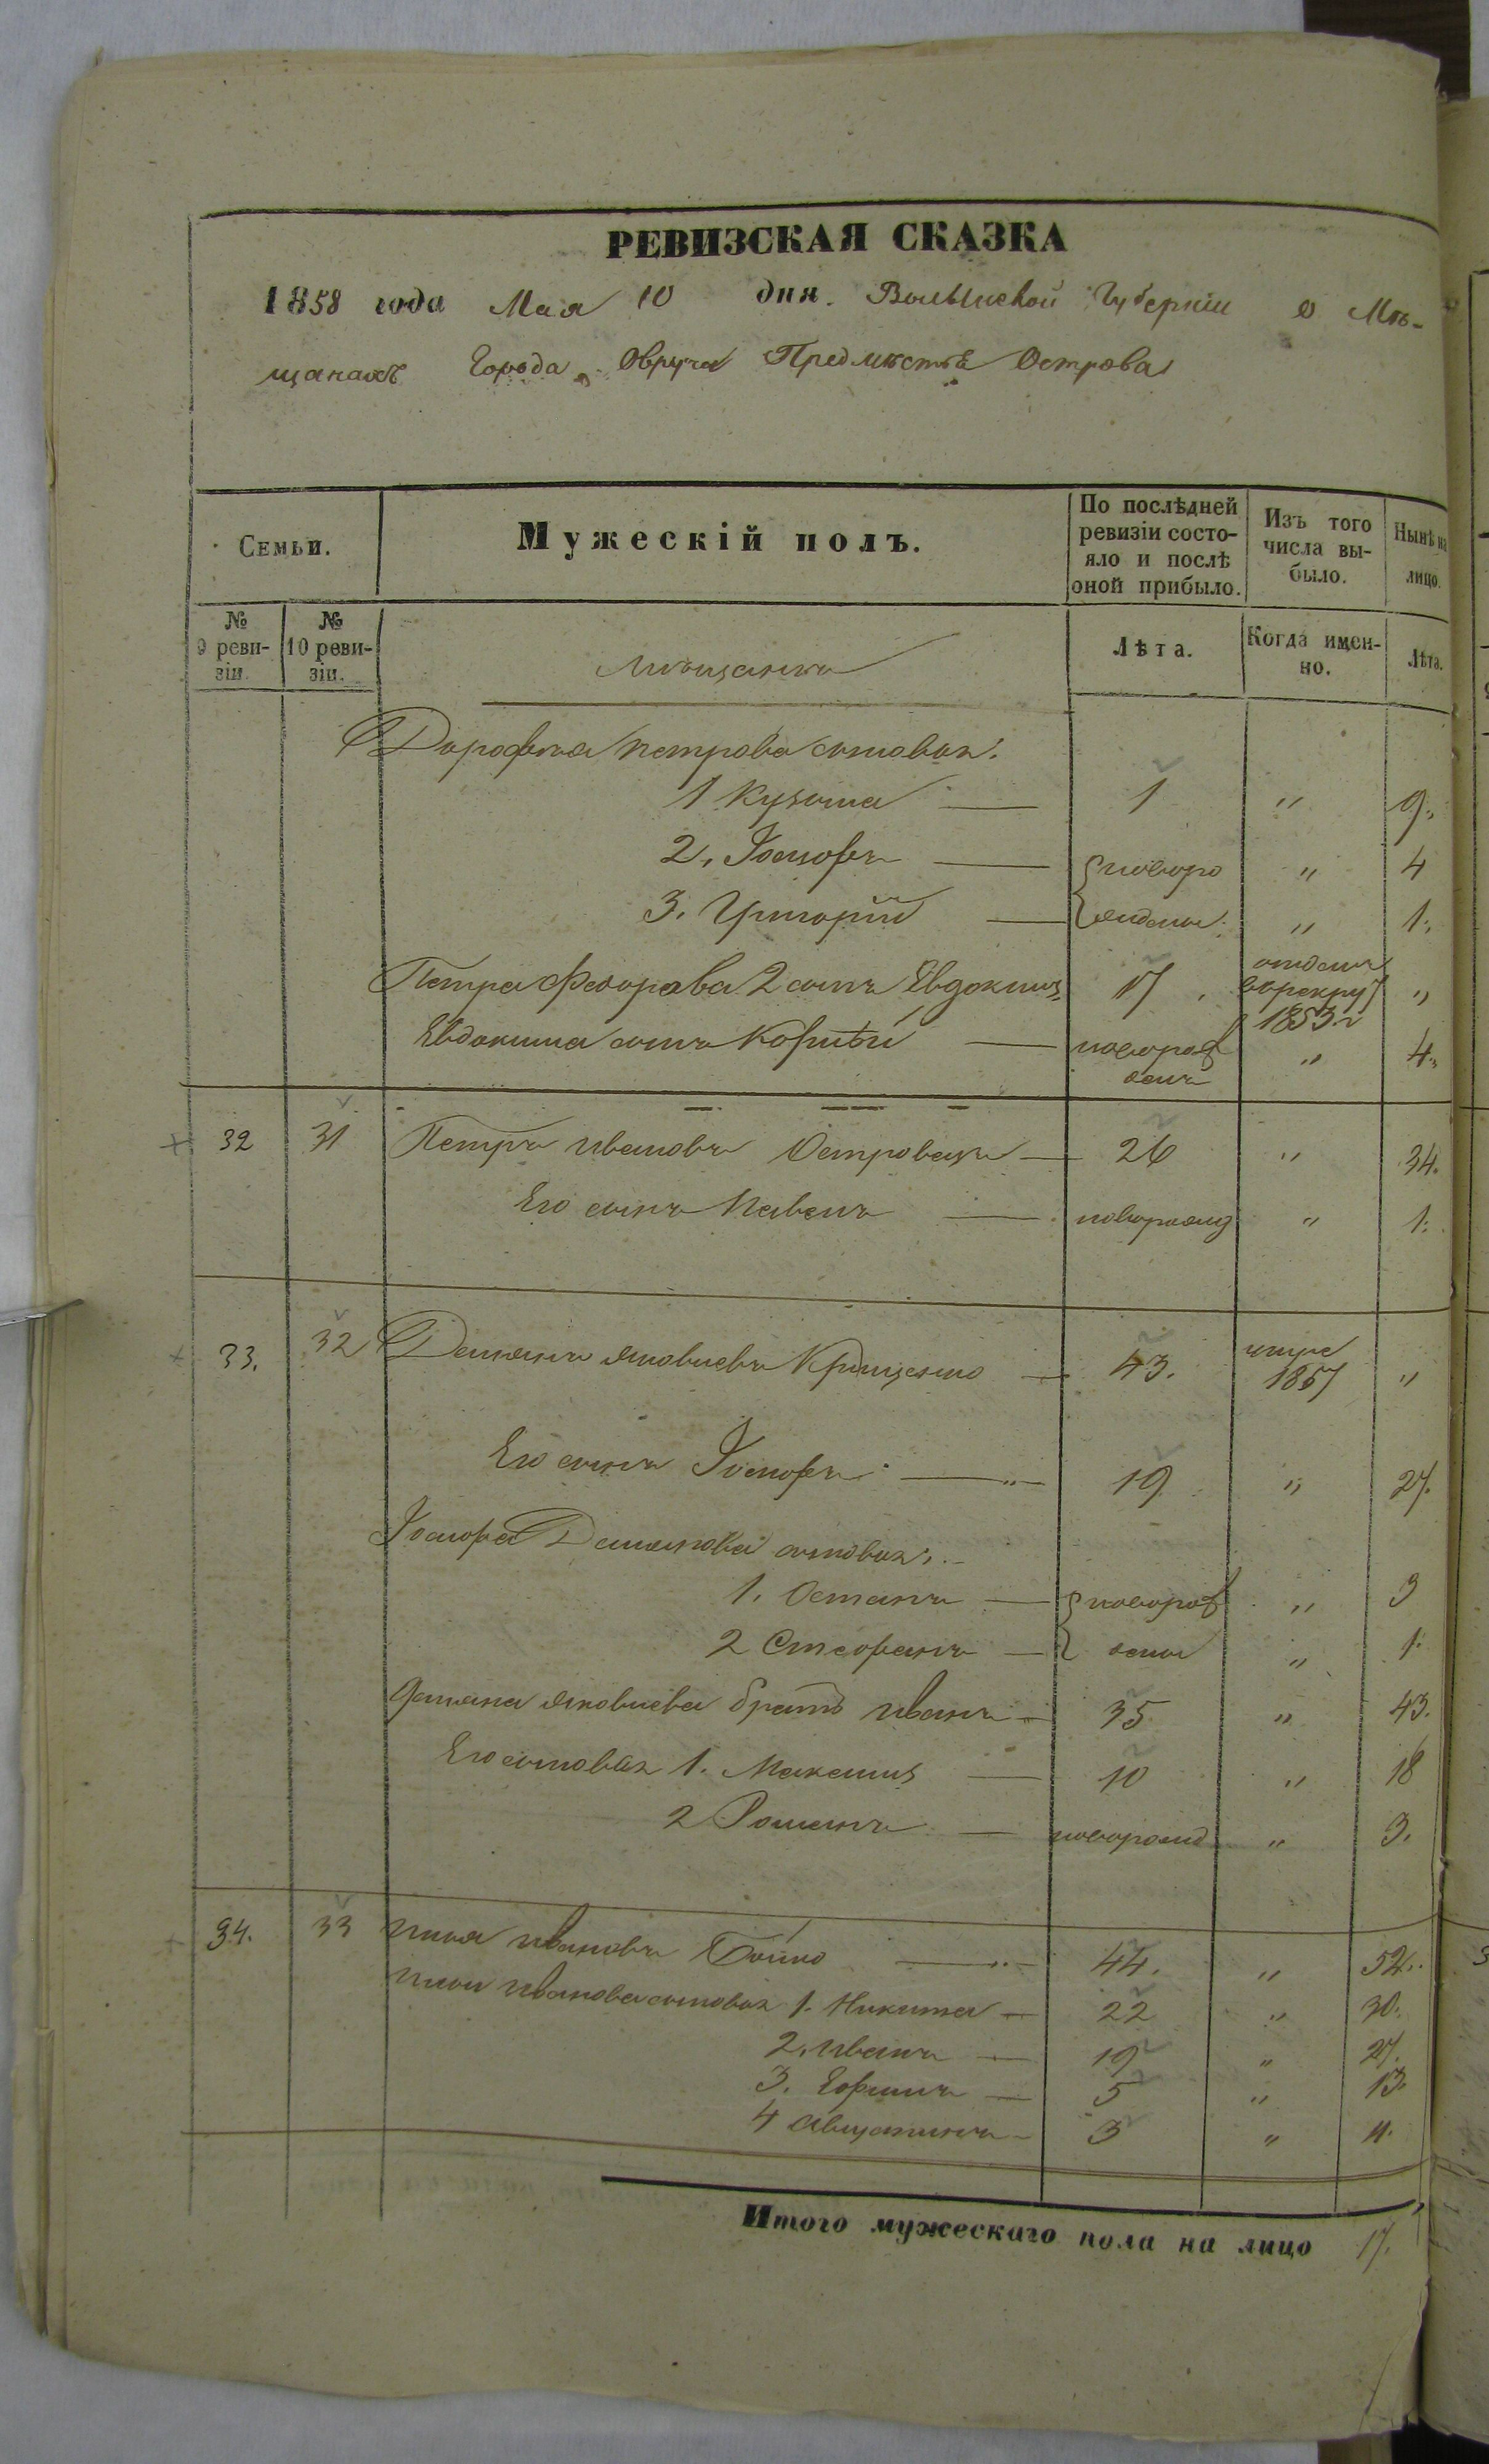 РЕВИЗСКАЯ СКАЗКА
1858 года Мая 10 дня. Волынской Губерніи о Мѣ-
щанахъ Города Овруча Предмѣстья Острова
Семьи.
Мужескій полъ.
По послѣдней
ревизіи состо-
яло и послѣ
оной прибыло.
Изъ того
числа вы-
было.
Нынѣ на
лицо.
№
9 реви-
зіи.
№
10 реви-
зіи.
мѣщанѣ
Лѣта.
Когда имен-
но.
Лѣта.
Дорофѣя Петрова сыновья:
1 Кузьма — 1 " 9.
2. Іосифъ — новоро " 4
3. Григорій — жденые " 1.
Петра Федорова 2 сынъ Евдокимъ 17 отданъ
в рекруты "
1853 г
Евдокима сынъ Корнѣй — новорож " 4.
денъ
32 31 Петръ Ивановъ Островецъ — 26 " 34.
Его сынъ Павелъ — новорожд " 1.
33. 32 Демьянъ Яковлевъ Крищенко — 43. умре
1857 "
Его сынъ Іосифъ — 19 " 27.
Іосифа Демьянова сыновья:
1. Остапъ — новорож " 3
2 Стефанъ — дены " 1.
Демьяна Яковлева братъ Иванъ — 35 " 43.
Его сыновья 1. Максимъ — 10 " 18
2 Романъ — новорожд " 3.
34. 33 Илья Ивановъ Бойко — 44. " 52.
Ильи Иванова сыновья 1. Никита — 22 " 30.
2. Иванъ — 19 " 27.
3. Ефимъ — 5 " 13.
4 Августинъ — 3 " 11.
Итого мужескаго пола на лицо 17.